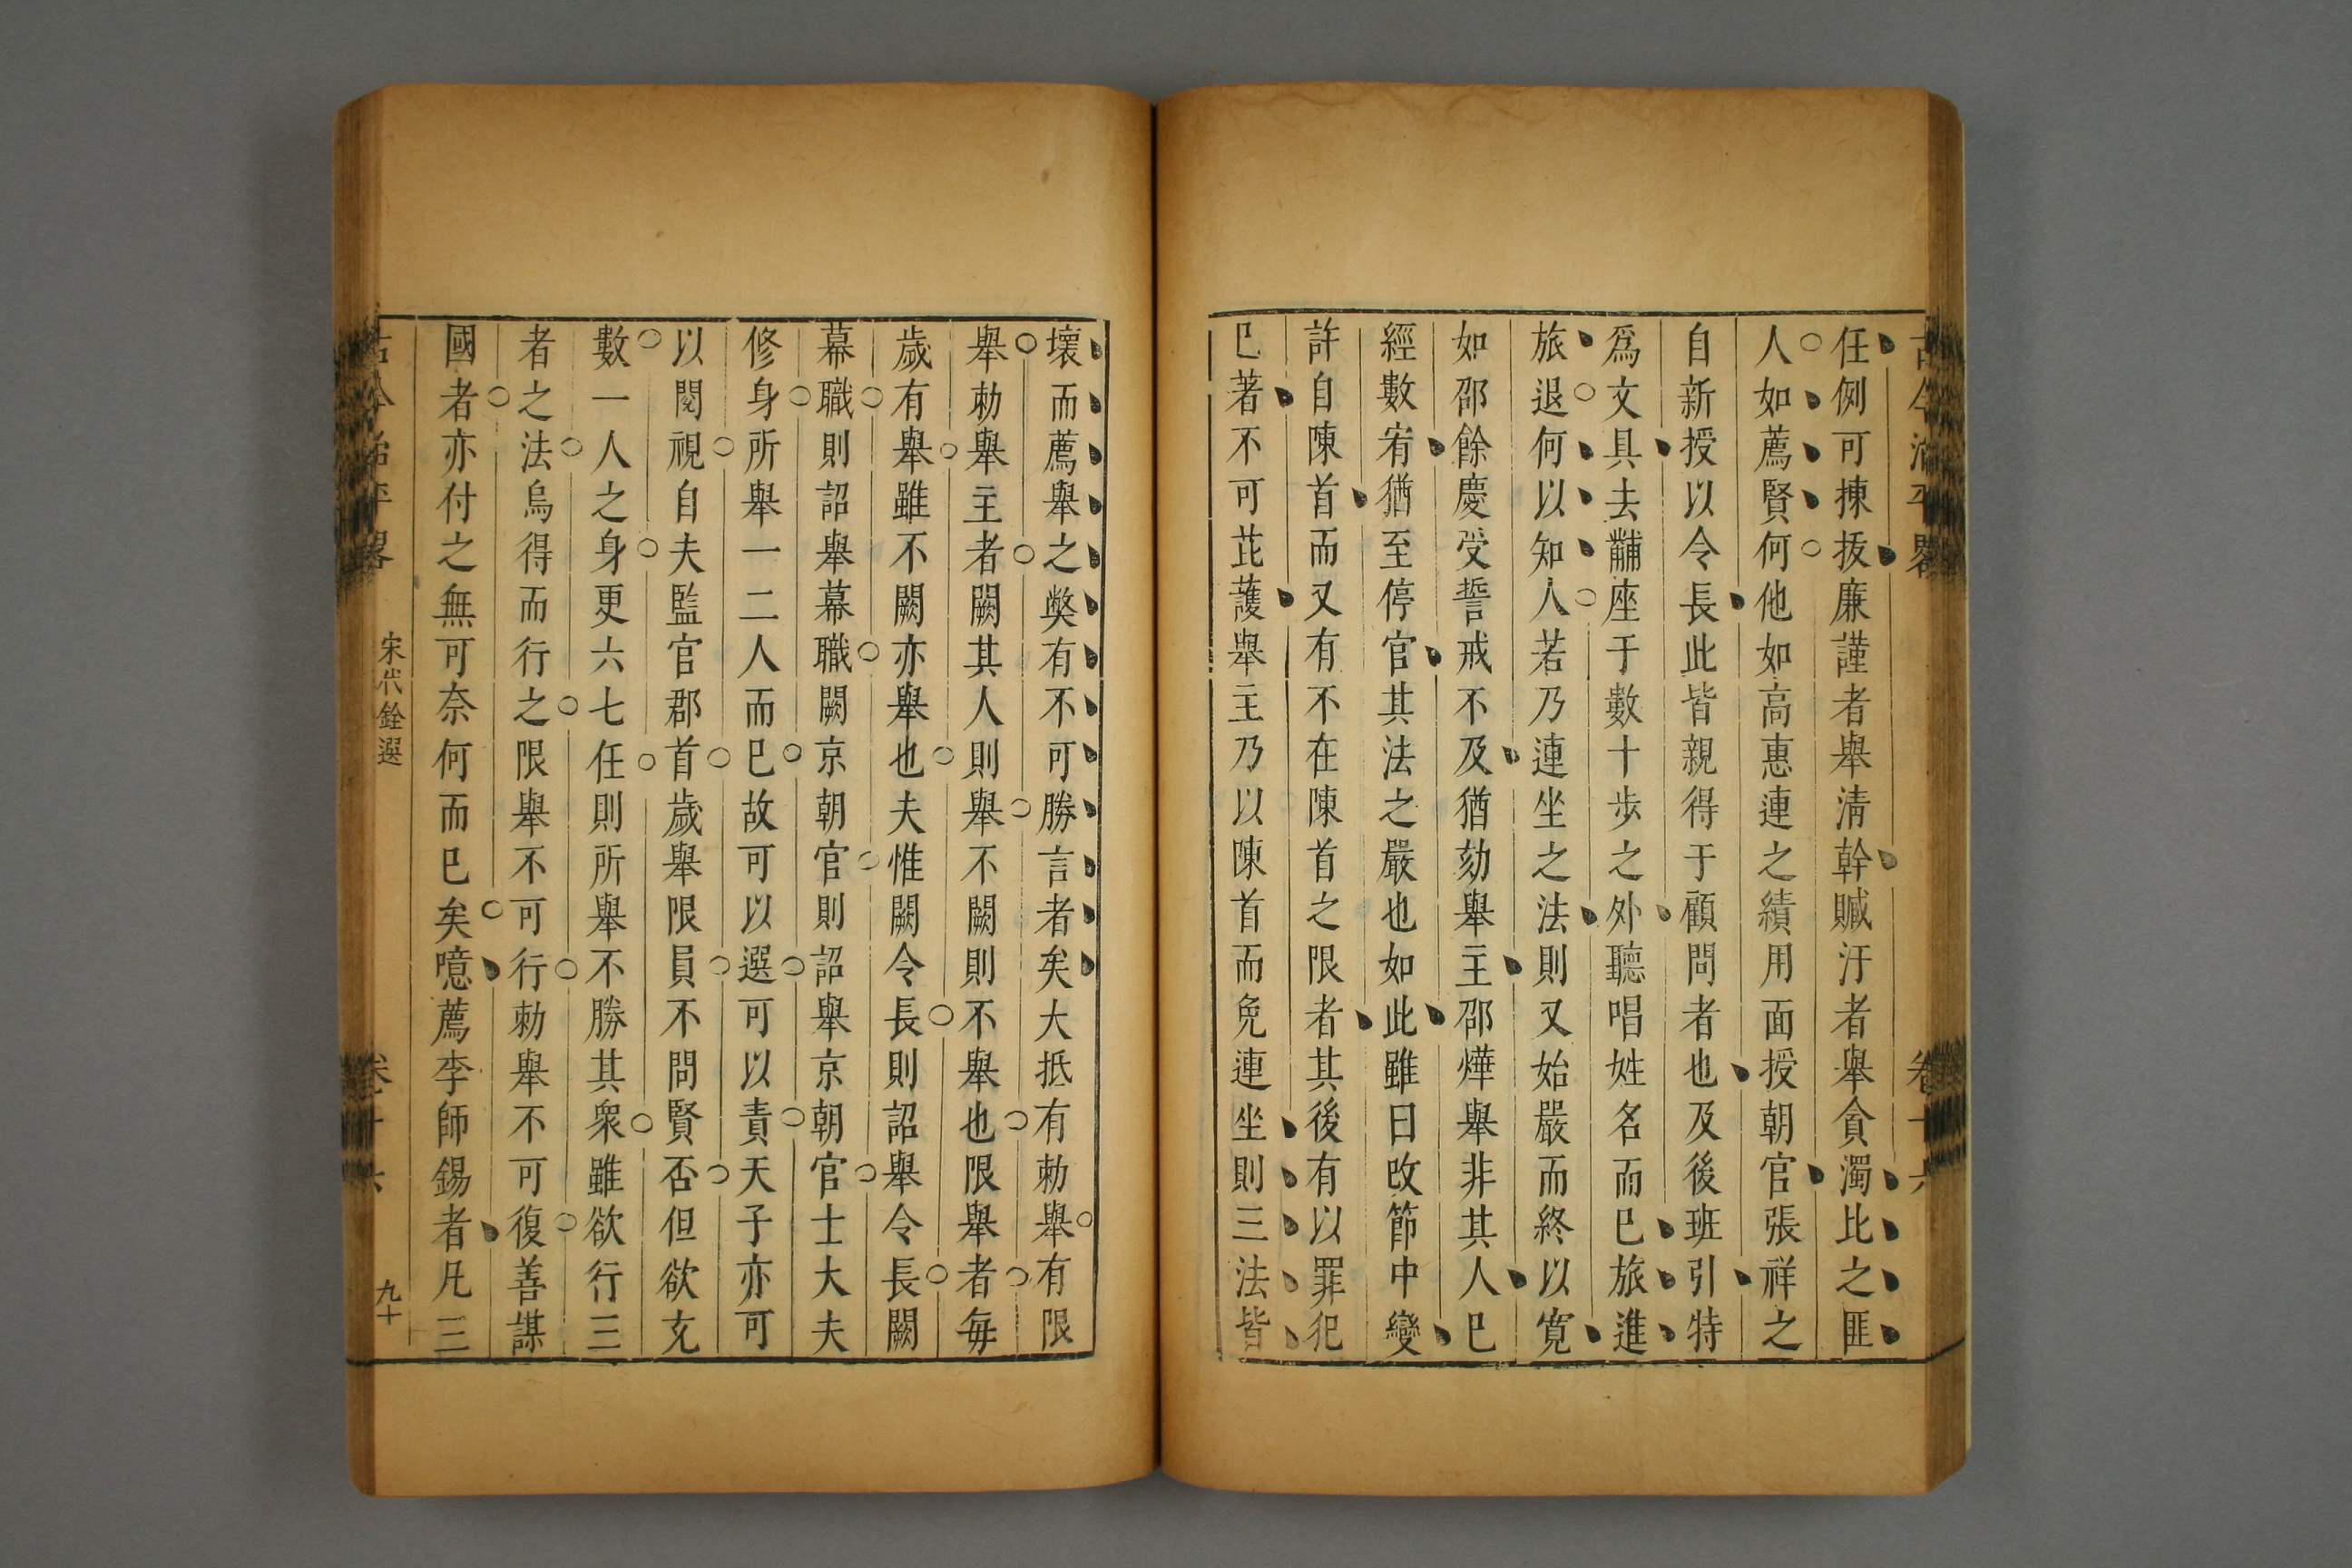 古今治平畧 卷十六
任例可揀拔廉謹者舉淸幹贓汙者舉貪濁比之匪
人如薦賢何他如高惠連之績用面授朝官張祥之
自新授以令長此皆親得于顧問者也及後班引特
爲文具去黼座于數十步之外聽唱姓名而已旅進
旅退何以知人若乃連坐之法則又始嚴而終以寬
如邵餘慶受誓戒不及猶劾舉主邵燁舉非其人已
經數宥猶至停官其法之嚴也如此雖曰改節中變
許自陳首而又有不在陳首之限者其後有以罪犯
已著不可芘護舉主乃以陳首而免連坐則三法皆
壞而薦舉之獘有不可勝言者矣大抵有勅舉有限
舉勅舉主者闕其人則舉不闕則不舉也限舉者每
歲有舉雖不闕亦舉也夫惟闕令長則詔舉令長闕
幕職則詔舉幕職闕京朝官則詔舉京朝官士大夫
修身所舉一二人而已故可以選可以責天子亦可
以閱視自夫監官郡首歲舉限員不問賢否但欲充
數一人之身更六七任則所舉不勝其衆雖欲行三
者之法烏得而行之限舉不可行勅舉不可復善謀
國者亦付之無可奈何而已矣噫薦李師錫者凡三
古今治平畧 宋代銓選 卷十六 九十